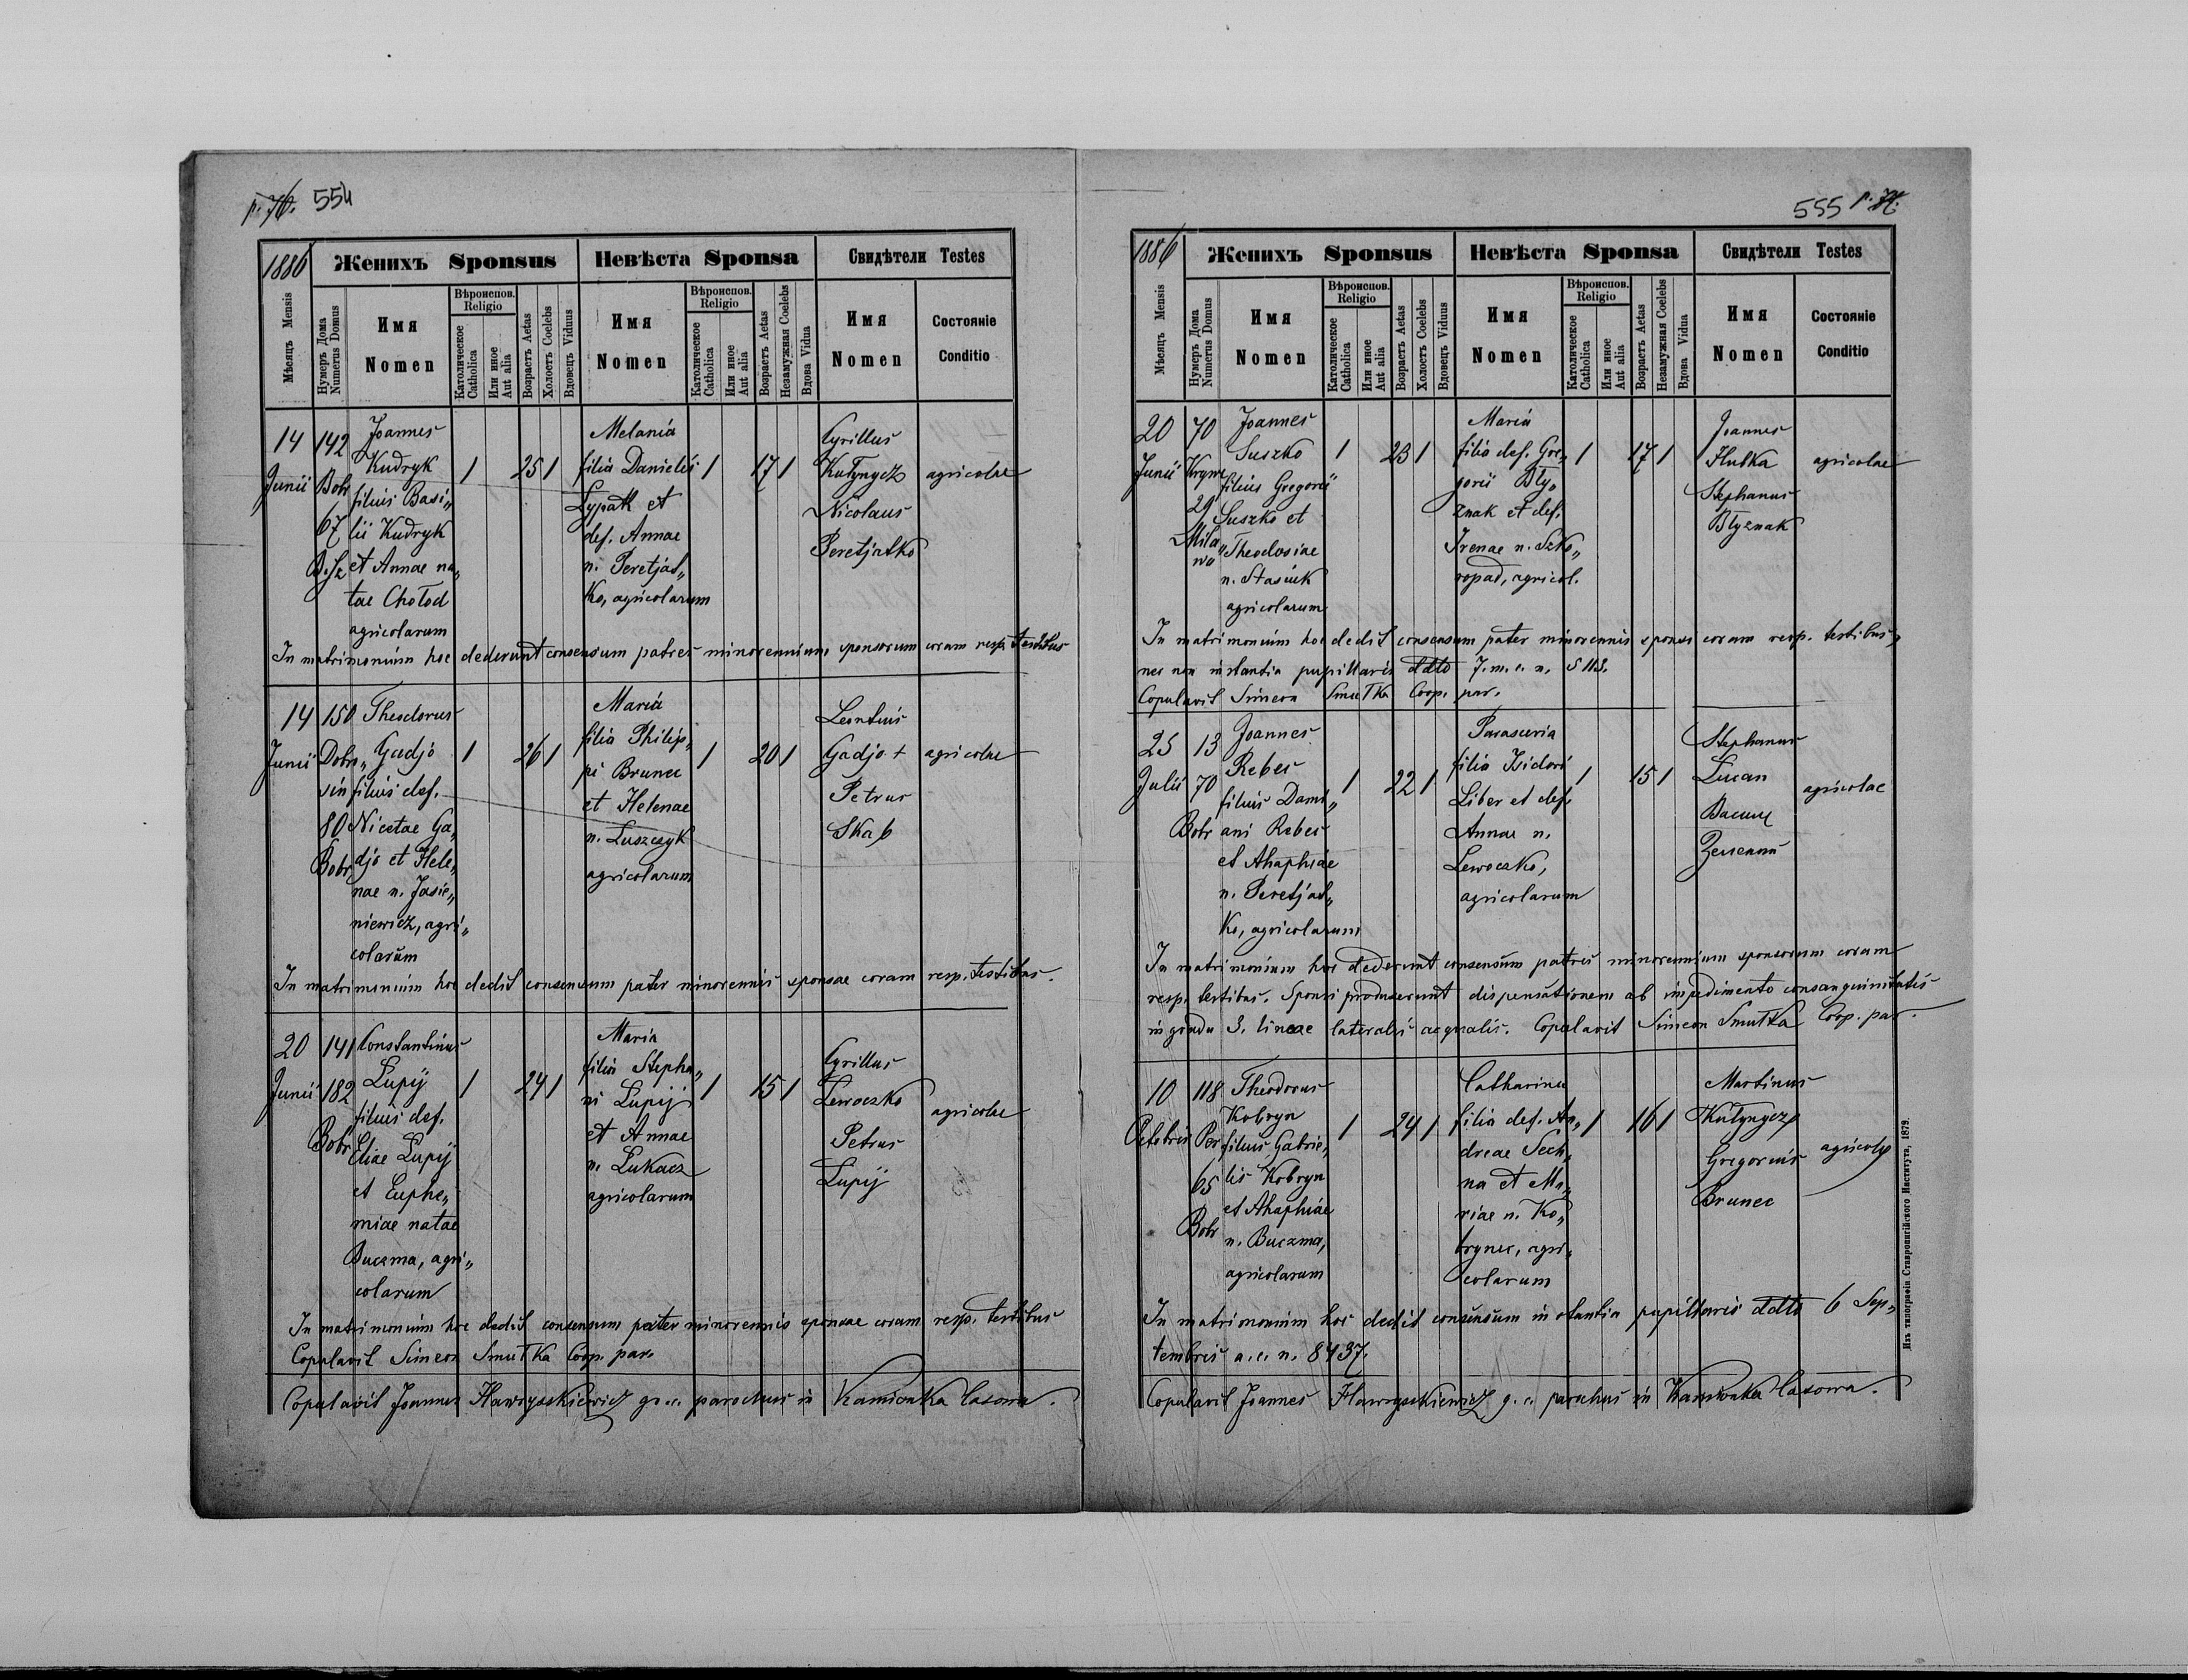 p. 76. 554
1886
Женихъ Sponsus
Невѣста Sponsa
Свидѣтели Testes
Мѣсяцъ Mensis
Нумеръ Дома Numerus Domus
Имя Nomen
Вѣроиспов. Religio
Католическое Catholica
Или иное Aut alia
Возрастъ Aetas
Холостъ Coelebs
Вдовецъ Viduus
Имя Nomen
Вѣроиспов. Religio
Католическое Catholica
Или иное Aut alia
Возрастъ Aetas
Незамужная Coelebs
Вдова Vidua
Имя Nomen
Состояніе Conditio
14 Junii
142 Bobr
67
Joannes
Kudryk
filius Basi„
lii Kudryk
et Annae na„
tae Chołod
agricolarum
1 25 1
Melania
filia Danielis
Lypak et
def. Annae
n. Peretjat„
ko, agricolarum
1 17 1
Cyrillus
Kutynycz
Nicolaus
Peretjatko
agricolae
In matrimonium hoc dederunt consensum patres minorennium sponsorum coram resp. testibus
14 Junii
150 Dobro„
sin
80
Bobr
Theodorus
Gadjo
filius def.
Nicetae Ga„
djo et Hele„
nae n. Jasie„
niewicz, agri„
colarum
1 26 1
Maria
filia Philip„
pi Brunec
et Helenae
n. Luszczyk
agricolarum
1 20 1
Leontius
Gadjo +
Petrus
Skab
agricolae
In matrimonium hoc dedit consensum pater minorennis sponsae coram resp. testibus.
20 Junii
141
182
Bobr
Constantinus
Lupij
filius def.
Eliae Lupij
et Euphe„
miae natae
Buczma, agri„
colarum
1 24 1
Maria
filia Stepha„
ni Lupij
et Annae
n. Lukacz
agricolarum
1 15 1
Cyrillus
Lewoczko
Petrus
Lupij
agricolae
In matrimonium hoc dedit consensum pater minorennis sponsae coram resp. testibus
Copulavit Simeon Smutka Coop. par.
Copulavit Joannes Hawryszkiewicz gr. c. parochus in Kamionka lasowa.
555
1886
Женихъ Sponsus
Невѣста Sponsa
Свидѣтели Testes
Мѣсяцъ Mensis
Нумеръ Дома Numerus Domus
Имя Nomen
Вѣроиспов. Religio
Католическое Catholica
Или иное Aut alia
Возрастъ Aetas
Холостъ Coelebs
Вдовецъ Viduus
Имя Nomen
Вѣроиспов. Religio
Католическое Catholica
Или иное Aut alia
Возрастъ Aetas
Незамужная Coelebs
Вдова Vidua
Имя Nomen
Состояніе Conditio
20 Junii
70
29
Joannes
Suszko
filius Gregorii
Suszko et
Theodosiae
n. Stasiuk
agricolarum
1 23 1
Maria
filia def. Gre„
gorii Bły„
znak et def.
Irenae n. Szko„
ropad, agricol.
1 17 1
Joannes
Hutka
Stephanus
Błyznak
agricolae
In matrimonium hoc dedit consensum pater minorennis sponsi coram resp. testibus,
nec non instantia pupillaris ddto 7. m. c. n. 5113.
Copulavit Simeon Smutka Coop. par.
25 Julii
13
70
Bobr
Joannes
Rebec
filius Dami„
ani Rebec
et Ahaphiae
n. Peretjat„
ko, agricolarum
1 22 1
Parascevia
filia Isidori
Liber et def.
Annae n.
Lewoczko,
agricolarum
1 15 1
Stephanus
Lucan
agricolae
In matrimonium hoc dederunt consensum patres minorennium sponsorum coram
resp. testibus. Sponsi produxerunt dispensationem ab impedimento consanguinitatis
in gradu 3. lineae lateralis aequalis. Copulavit Simeon Smutka Coop. par.
10 Octobris
118
65
Bobr
Theodorus
Kobryn
filius Gabrie„
lis Kobryn
et Ahaphiae
n. Buczma,
agricolarum
1 24 1
Catharina
filia def. An„
dreae Sech„
na et Ma„
riae n. Ko„
brynec, agri„
colarum
1 16 1
Martinus
Kutynycz
Gregorius
Brunec
agricolae
In matrimonium hoc dedit consensum instantia pupillaris ddto 6 Sep„
tembris a. c. n. 8437.
Copulavit Joannes Hawryszkiewicz g. c. parochus in Kamionka lasowa.
Изъ типографіи Ставропигійского Института, 1879.